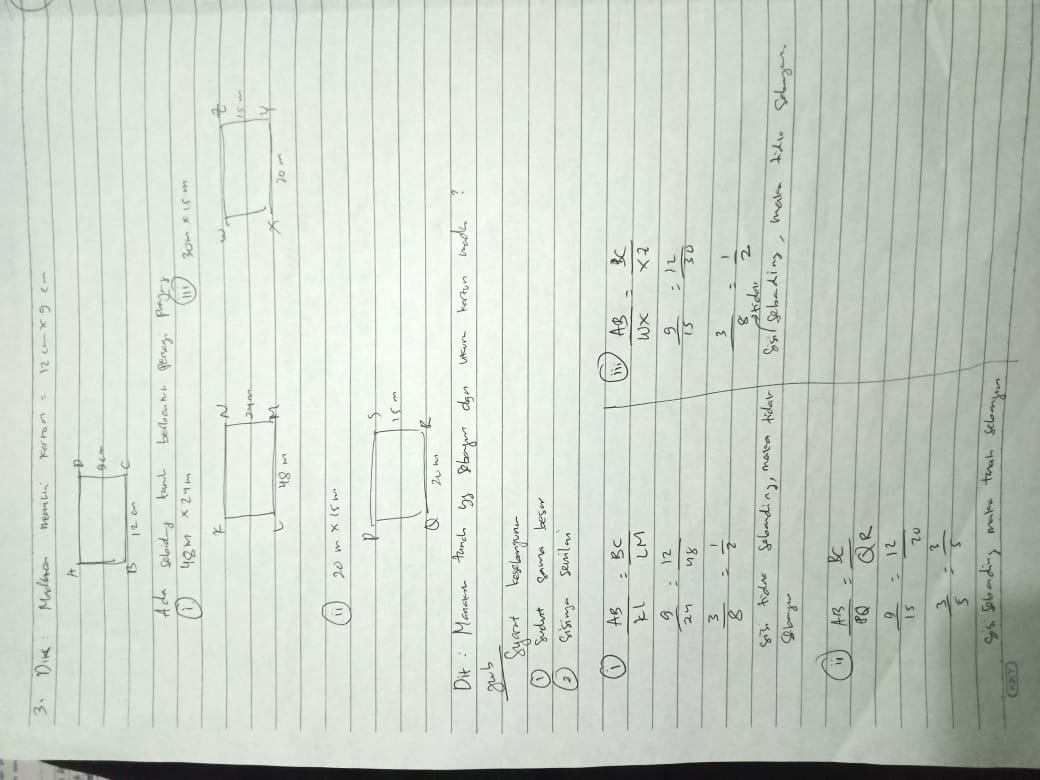 3. Dik : Madhan memiliki karton = 12 cm x 9 cm
A D
9cm
B C
12 cm
Ada sebidang tanah berbentuk persegi panjang
(i) 48 m x 24 m
K N
24m
L M
48 m
(iii) 30m x 15 m
W Z
15m
X Y
30 m
(ii) 20 m x 15 m
P S
15 m
Q R
20 m
Dit : Manakah tanah yg sebangun dgn ukuran karton madh ?
Jwb
Syarat kesebangunan
(1) Sudut sama besar
(2) Sisinya senilai
(i) AB/KL = BC/LM
9/24 = 12/48
3/8 = 1/2
Sisi tidak sebanding, maka tidak
sebangun
(ii) AB/PQ = BC/QR
9/15 = 12/20
3/5 = 3/5
Sisi sebanding maka tanah sebangun
(iii) AB/WX = BC/XZ
9/15 = 12/30
3/8 = 1/2
Sisi tidak sebanding, maka tidak sebangun